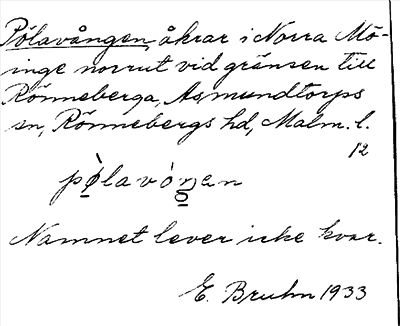 Pölavången, åkrar i Norra Mö-
inge norrut vid gränsen till
Rönneberga, Asmundtorps
sn, Rönnebergs hd, Malm. l.
12
pø̀lavóŋen
Namnet lever icke kvar.
E. Bruhn 1933